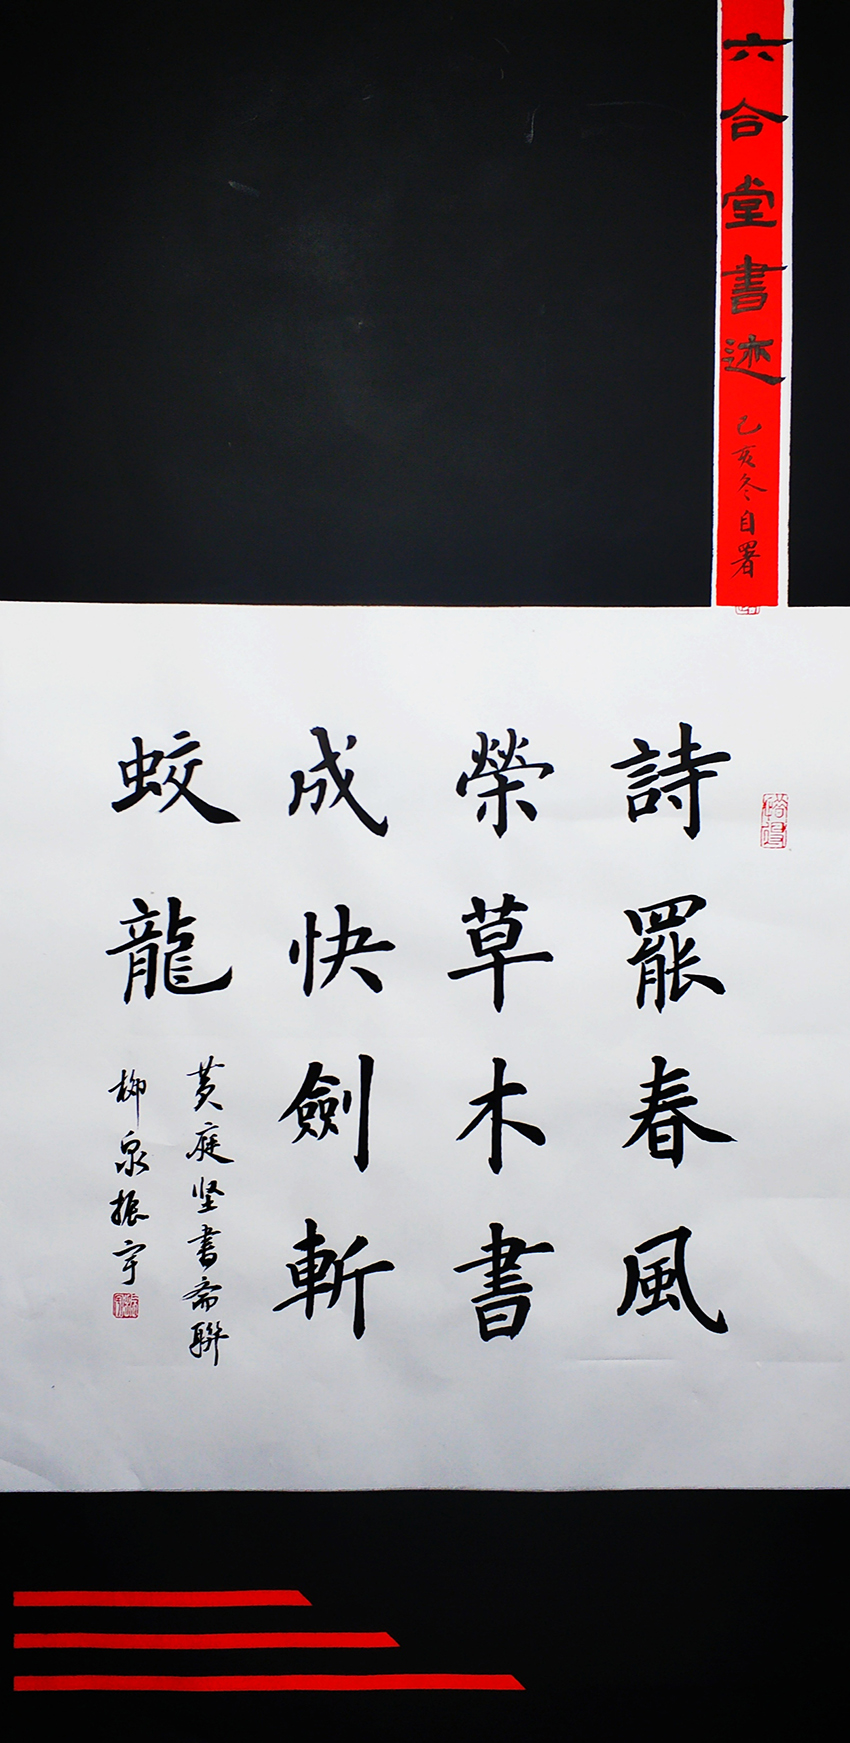 六合堂書迹
己亥冬自署
詩罷春風
榮草木書
成快劍斬
蛟龍
黄庭坚書斋聯
柳泉振宇